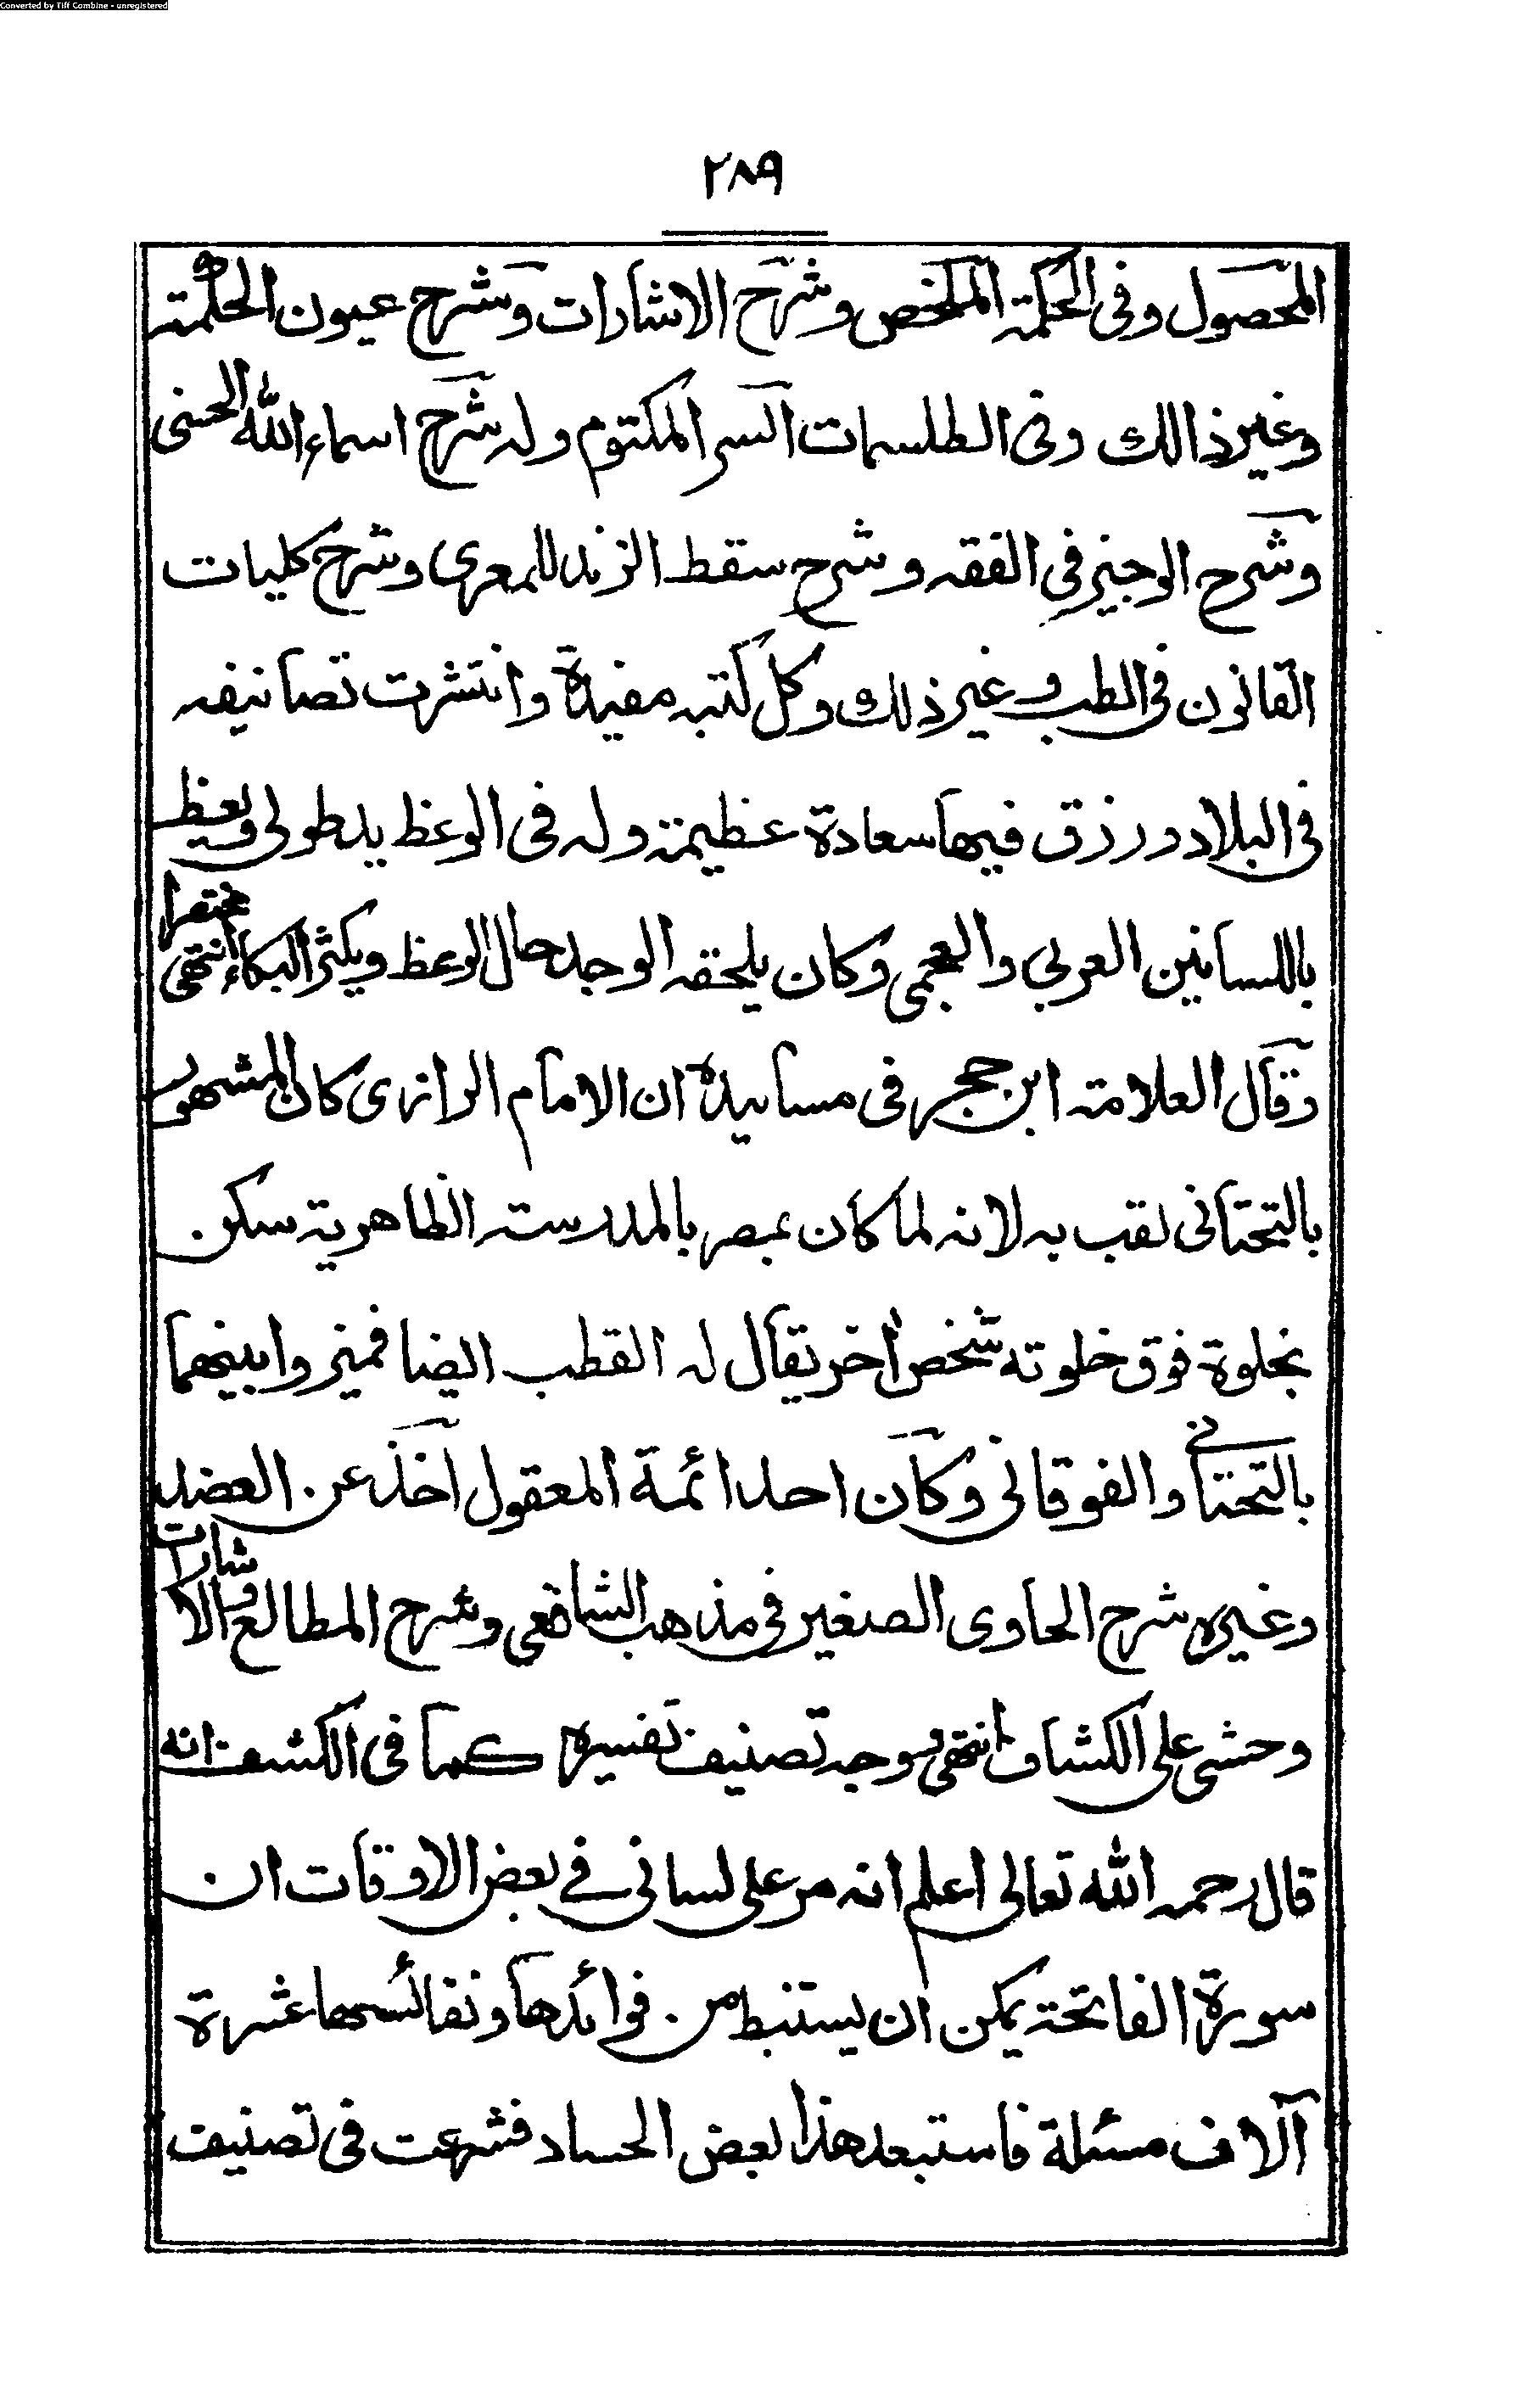 Converted by Tiff Combine - unregistered
٢٨٩
المحصول وفي الحكمة الملخص وشرح الاشارات وشرح عيون الحكمة
وغير ذالك وفي الطلسمات السر المكتوم وله شرح اسماء الله الحسنى
وشرح الوجيز في الفقه وشرح سقط الزند للمعرى وشرح كليات
القانون في الطب وغير ذلك وكل كتبه مفيدة وانتشرت تصانيفه
في البلاد ورزق فيها سعادة عظيمة وله في الوعظ يد طولى ويعظ
باللسانين العربي والعجمي وكان يلحقه الوجد حال الوعظ ويكثر البكاء انتهى مختصرا
وقال العلامة ابن حجر في مسانيده ان الامام الرازى كان المشهور
بالتحتاني لقب به لانه لما كان بمصر بالمدرسة الظاهرية سكن
بخلوة فوق خلوته شخص آخر يقال له القطب ايضا فميزوا بينهما
بالتحتاني والفوقاني وكان احد ائمة المعقول اخذ عن العضد
وغيره شرح الحاوى الصغير في مذهب الشافعي وشرح المطالع والاشارات
وحشى على الكشاف انتهى ووجه تصنيف تفسيره كما في الكشف انه
قال رحمه الله تعالى اعلم انه مر على لساني في بعض الاوقات ان
سورة الفاتحة يمكن ان يستنبط من فوائدها ونفائسها عشرة
آلاف مسئلة فاستبعد هذا بعض الحساد فشرعت في تصنيف